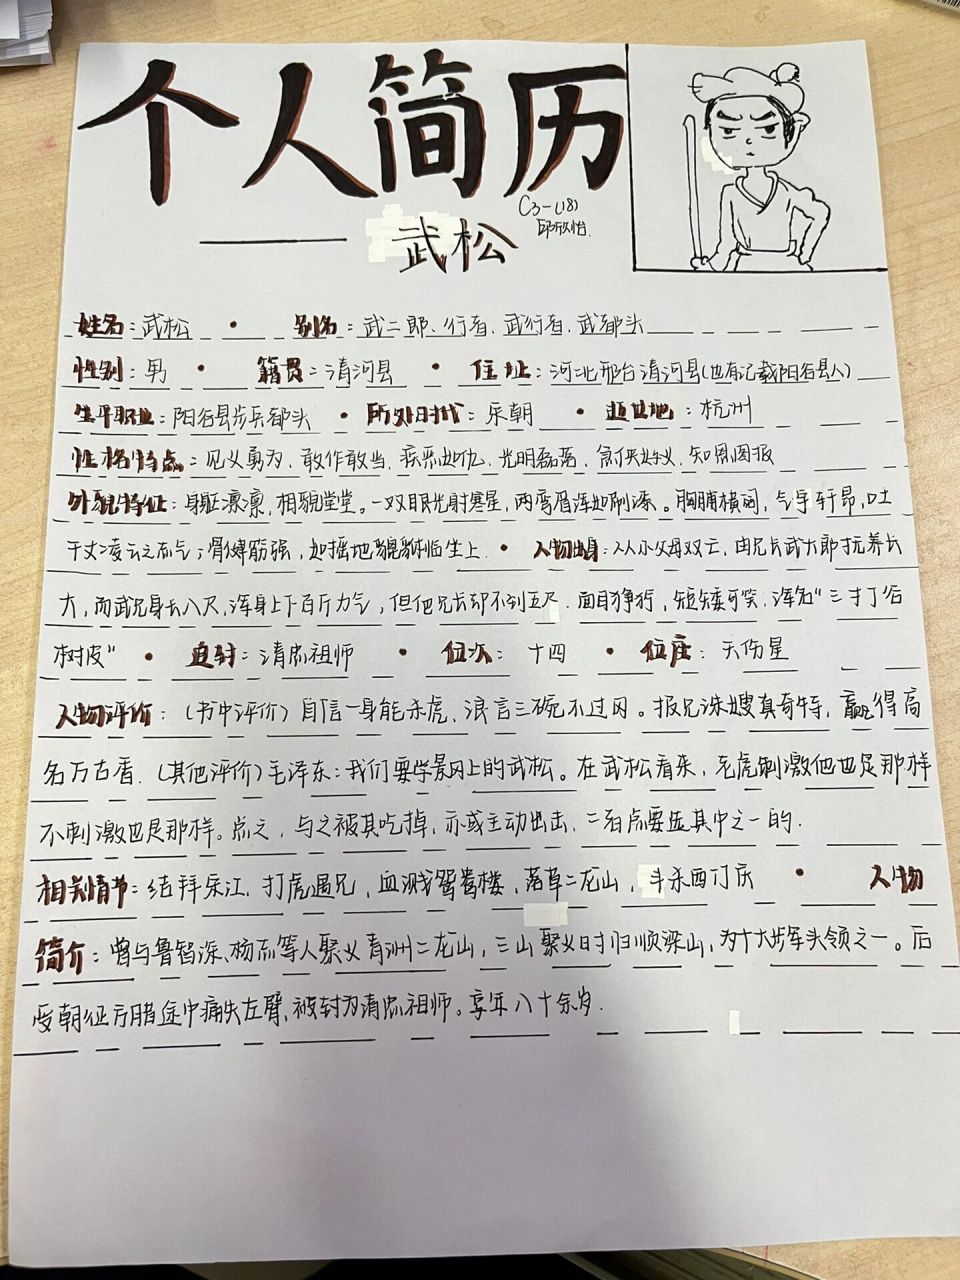 个人简历
C3-(18)
——武松
姓名：武松 · 别名：武二郎、行者、武行者、武都头
性别：男 · 籍贯：清河县 · 住址：河北邢台清河县(也有记载阳谷县人)
生平职业：阳谷县步兵都头 · 所处时代：宋朝 · 逝世地：杭州
性格特点：见义勇为、敢作敢当、疾恶如仇、光明磊落、急侠好义、知恩图报
外貌特征：身躯凛凛，相貌堂堂。一双眼光射寒星，两弯眉浑如刷漆。胸脯横阔，气宇轩昂，吐
千丈凌云之志气；骨健筋强，如摇地貔貅临坐上 · 人物出身：从小父母双亡，由兄长武大郎抚养长
大，而武兄身长八尺，浑身上下百斤力气，但他兄长却不到五尺．面目狰狞，短矮可笑，浑名“三寸丁谷
树皮” · 追封：清忠祖师 · 位次：十四 · 位座：天伤星
人物评价：（书中评价）自信一身能杀虎，浪言三碗不过冈。报兄诛嫂真奇特，赢得高
名万古香．（其他评价）毛泽东：我们要学景冈上的武松。在武松看来，老虎刺激他也是那样
不刺激也是那样。总之，与之被其吃掉，亦或主动出击，二者点要益其中之一的．
相关情节：结拜宋江，打虎遇兄，血溅鸳鸯楼，落草二龙山，斗杀西门庆 · 人物
简介：曾与鲁智深、杨志等人聚义青州二龙山，三山聚义时归顺梁山，为十大步军头领之一。后
受朝征方腊途中痛失左臂，被封为清忠祖师。享年八十余岁．